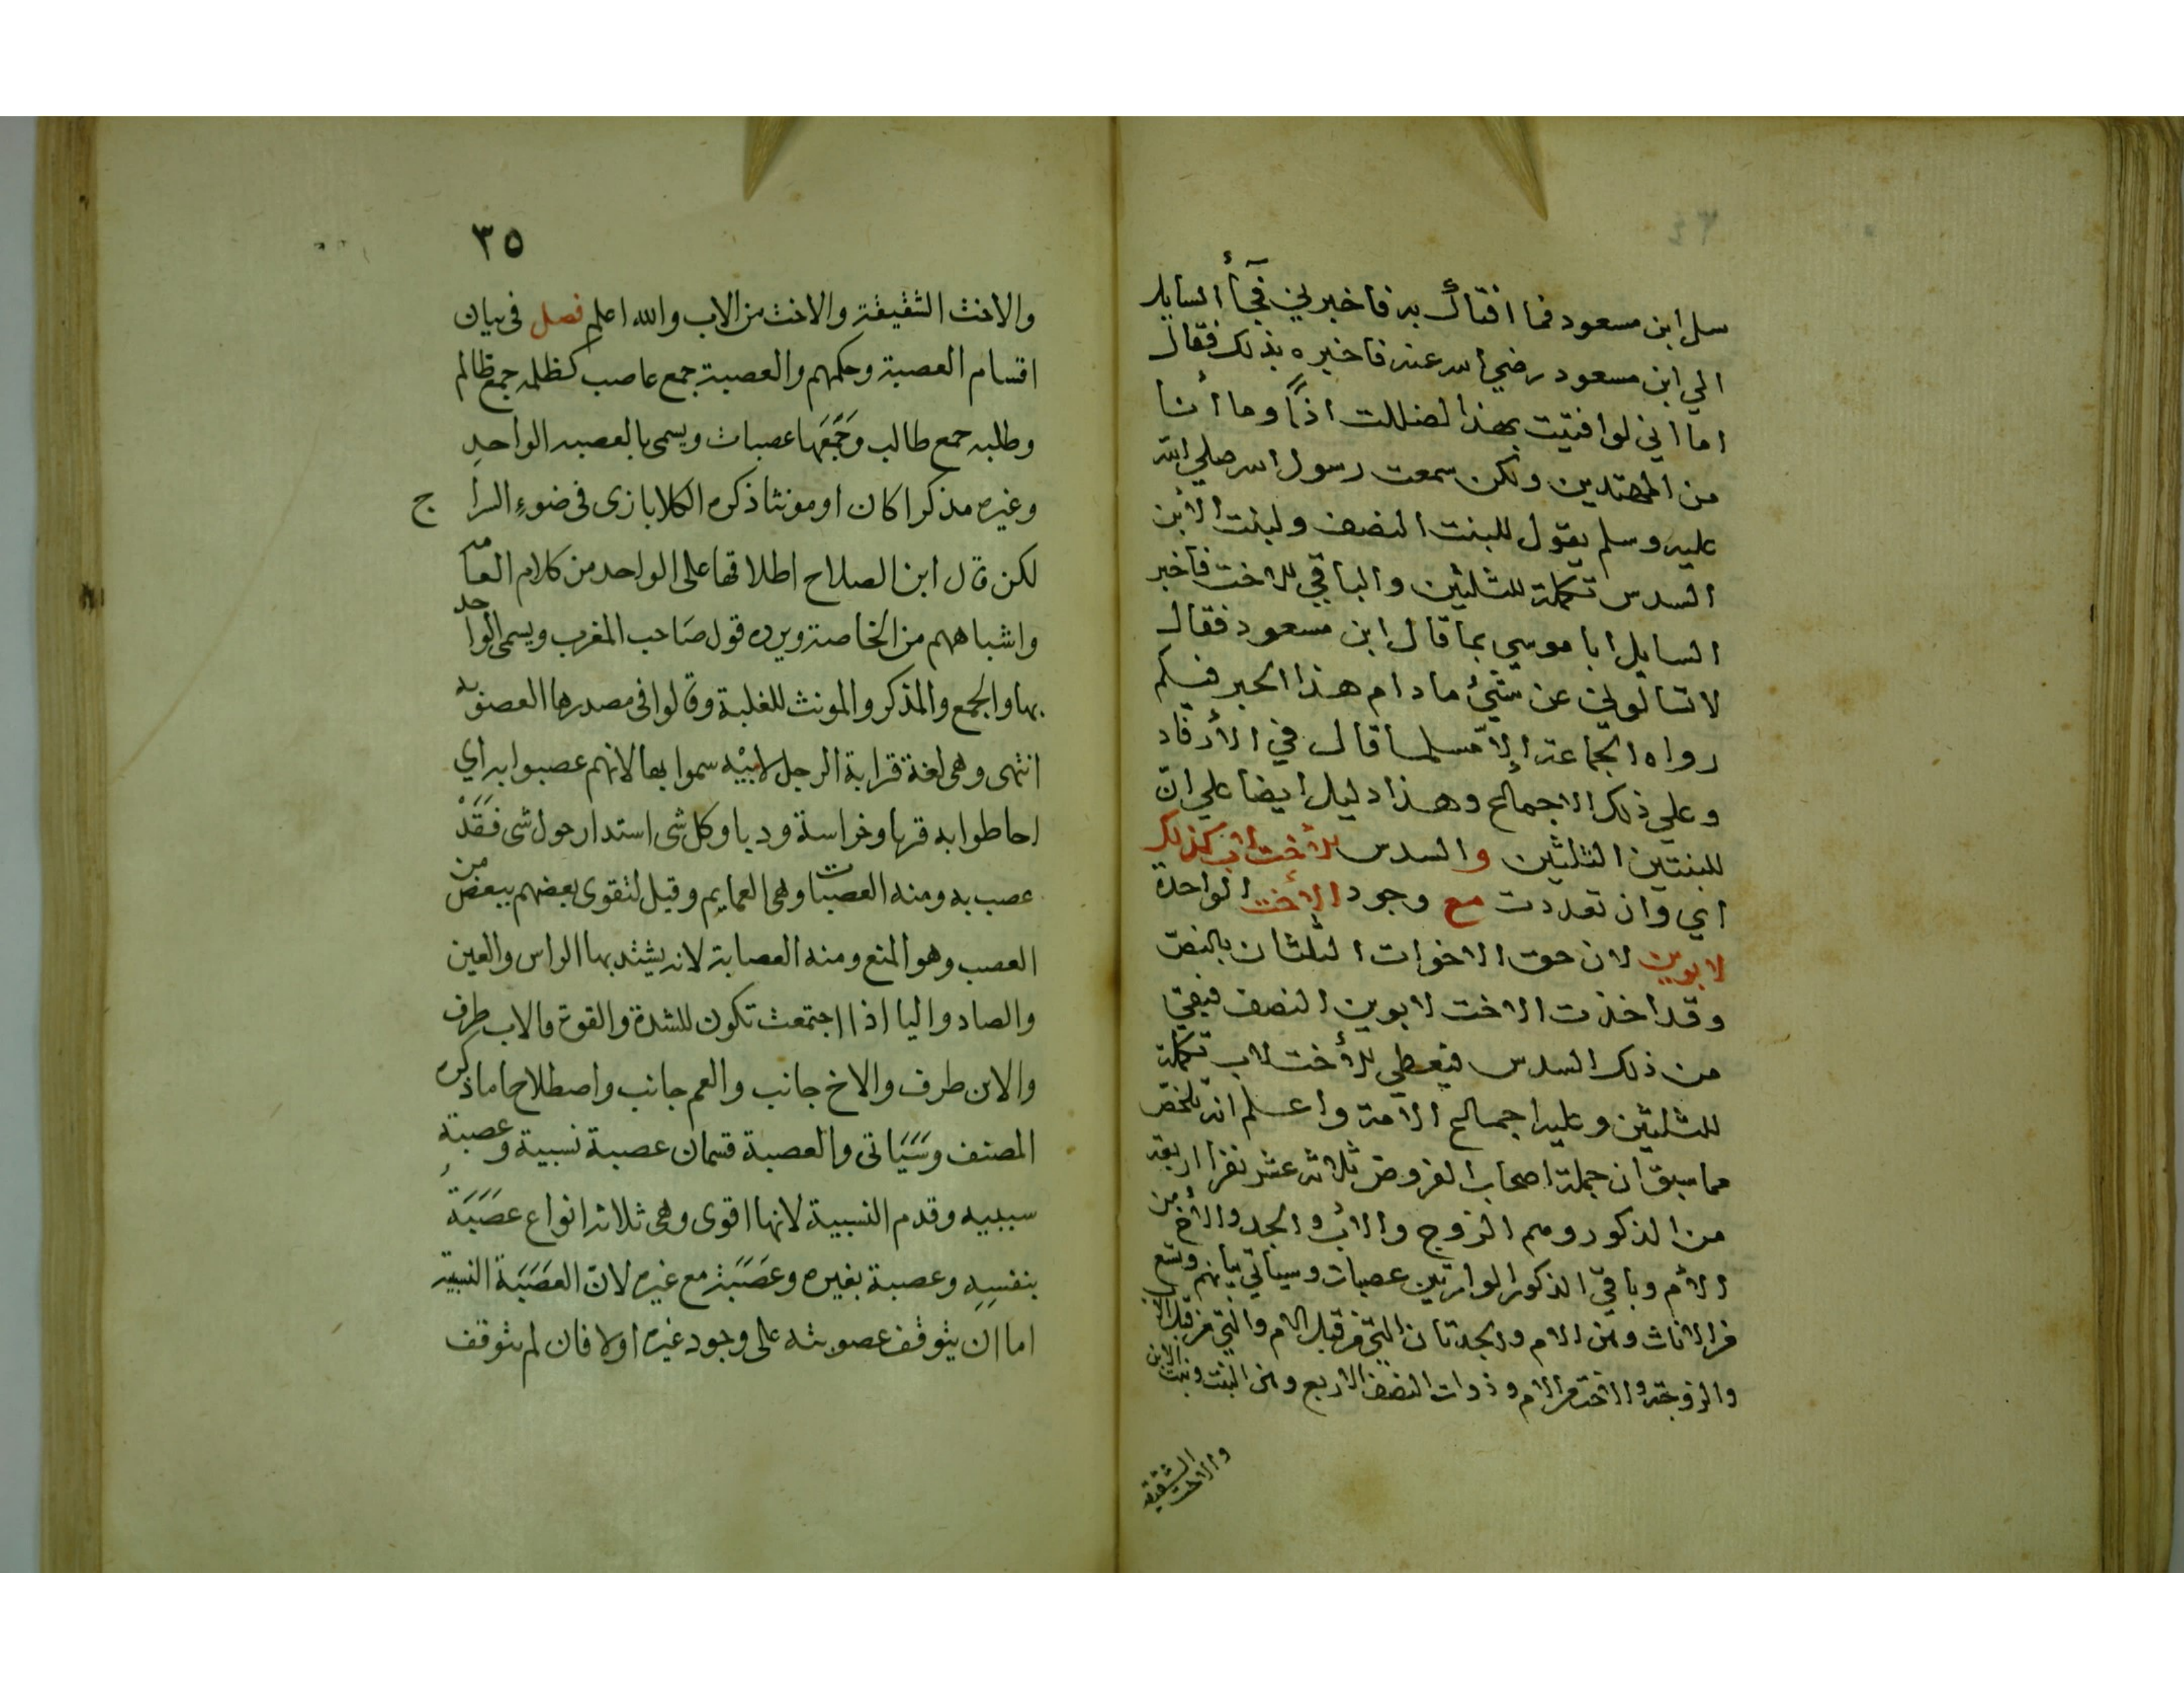 سل ابن مسعود فما افتاك به فاخبرني فجأ السايل
الي ابن مسعود رضي الله عنه فاخبره بذلك فقال
اما اني لو افتيت بهذا لضللت اذًا وما أنا
من المهتدين ولكن سمعت رسول الله صلي الله
عليه وسلم يقول للبنت النصف ولبنت الأبن
السدس تكملة للثلثين والباقي للاخت فاخبر
السايل ابا موسي بما قال ابن مسعود فقال
لا تسالوني عن شيئ مادام هذا الحبر فيكم
رواه الجماعة إلا مسلما قال في الأرفاد
وعلي ذلك الاجماع وهذا دليل ايضا علي انّ
للبنتين الثلثين والسدس للأخت لاب كذلك
اي وان تعددت مع وجود الأخت الواحدة
لابوين لان حق الاخوات الثلثان بالنص
وقد اخذت الاخت لابوين النصف فبقي
من ذلك السدس فيعطي للأخت لاب تكملة
للثلثين وعليه اجماع الامة واعلم انه تلخص
مما سبق ان جملة اصحاب الفروض ثلاثه عشر نفرا اربعة
من الذكور وهم الزوج والاب والجد والاخ من
الأم وباقي الذكور الوارثين عصبات وسياتي بيانهم وتسع
من الاناث وهن الام والجدتان التي من قبل الام والتي من قبل الاب
والزوجة والاخت من الام وذوات النصف الاربع وهن البنت وبنت الابن
والاخت الشقيقه
٣٥
والاخت الشقيقة والاخت من الاب والله اعلم فصل فى بيان
اقسام العصبة وحكمهم والعصبة جمع عاصب كظلمه جمع ظالم
وطلبه جمع طالب وجَمْعَها عصبات ويسمى بالعصبه الواحدِ
وغيره مذكرا كان او مونثا ذكره الكلابازى فى ضوءِ السراج
لكن قال ابن الصلاح اطلاقها على الواحد من كلام العامه
واشباههم من الخاصة ويرده قول صَاحب المغرب ويسمى الواحد
بها والجمع والمذكر والمونث للغلبة وقالوا فى مصدرها العصوبه
انتهى وهى لغة قرابة الرجل لابيْه سموا بها لانهم عصبوا به اي
احاطوا به قربا وحراسة وديا وكل شى استدار حول شى فَقَدْ
عصب به ومنه العصبات وهى العمايم وقيل لتقوى بعضهم ببعض من
العصب وهو المنع ومنه العصابة لانه يشد بها الراس والعين
والصاد واليا اذا اجتمعت تكون للشدة والقوة فالاب طرف
والابن طرف والاخ جانب والعم جانب واصطلاحا ما ذكره
المصنف وسَيَاتى والعصبة قسمان عصبة نسبية وعصبة
سببيه وقدم النسبية لانها اقوى وهى ثلاثه انواع عصَبَةٌ
بنفسِهِ وعصبة بغيره وعصَبَة مع غيره لانّ العصَبَة النسبية
اما ان يتوقف عصوبته على وجود غيره اولا فان لم يتوقف